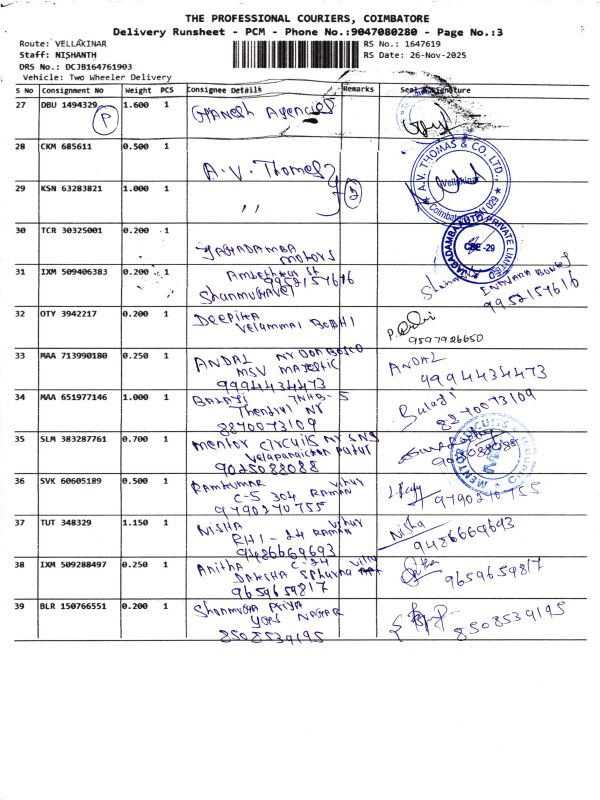 THE PROFESSIONAL COURIERS, COIMBATORE
Delivery Runsheet - PCM - Phone No.:9047080280 - Page No.:3
Route: VELLAKINAR
RS No.: 1647619
Staff: NISHANTH
RS Date: 26-Nov-2025
DRS No.: DCJB164761903
Vehicle: Two Wheeler Delivery
S No Consignment No Weight PCS Consignee Details Remarks Seal Signature
27 DBU 1494329 1.600 1 Ganesh Agencies
P
28 CKM 685611 0.500 1 A.V. Thomas
A.V. THOMAS & CO. LTD.,
Vellakinar
Coimbatore
29 KSN 63283821 1.000 1 ,,
2
30 TCR 30325001 0.200 1 JAGADAMBA
MOTORS
JAGADAMBA AUTO PRIVATE LIMITED
CBE -29
31 IXM 509406383 0.200 1
9952157616
Shanmugavel
9952157616
32 OTY 3942217 0.200 1 Deepika
Velammal BODHI
9597926650
33 MAA 713990180 0.250 1 ANDAL NR DON BOSCO
MSV MAJESTIC
9994434473
ANDAL
9994434473
34 MAA 651977146 1.000 1 Balaji TNHB-5
8870073109
Balaji
8870073109
35 SLM 383287761 0.700 1 Mentor circuits NR SNS
9025088088
MENTOR CIRCUITS
36 SVK 60605189 0.500 1 Ramkumar
C-5 304 RAMAN VIHAR
9790270755
9790270755
37 TUT 348329 1.150 1 NISHA
RH1-24 RAMAN VIHAR
9486669693
Nisha
9486669693
38 IXM 509288497 0.250 1 Anitha C-24
DAKSHA
9659659817
9659659817
39 BLR 150766551 0.200 1 Shanmuga Priya
NAGAR
8508539195
8508539195